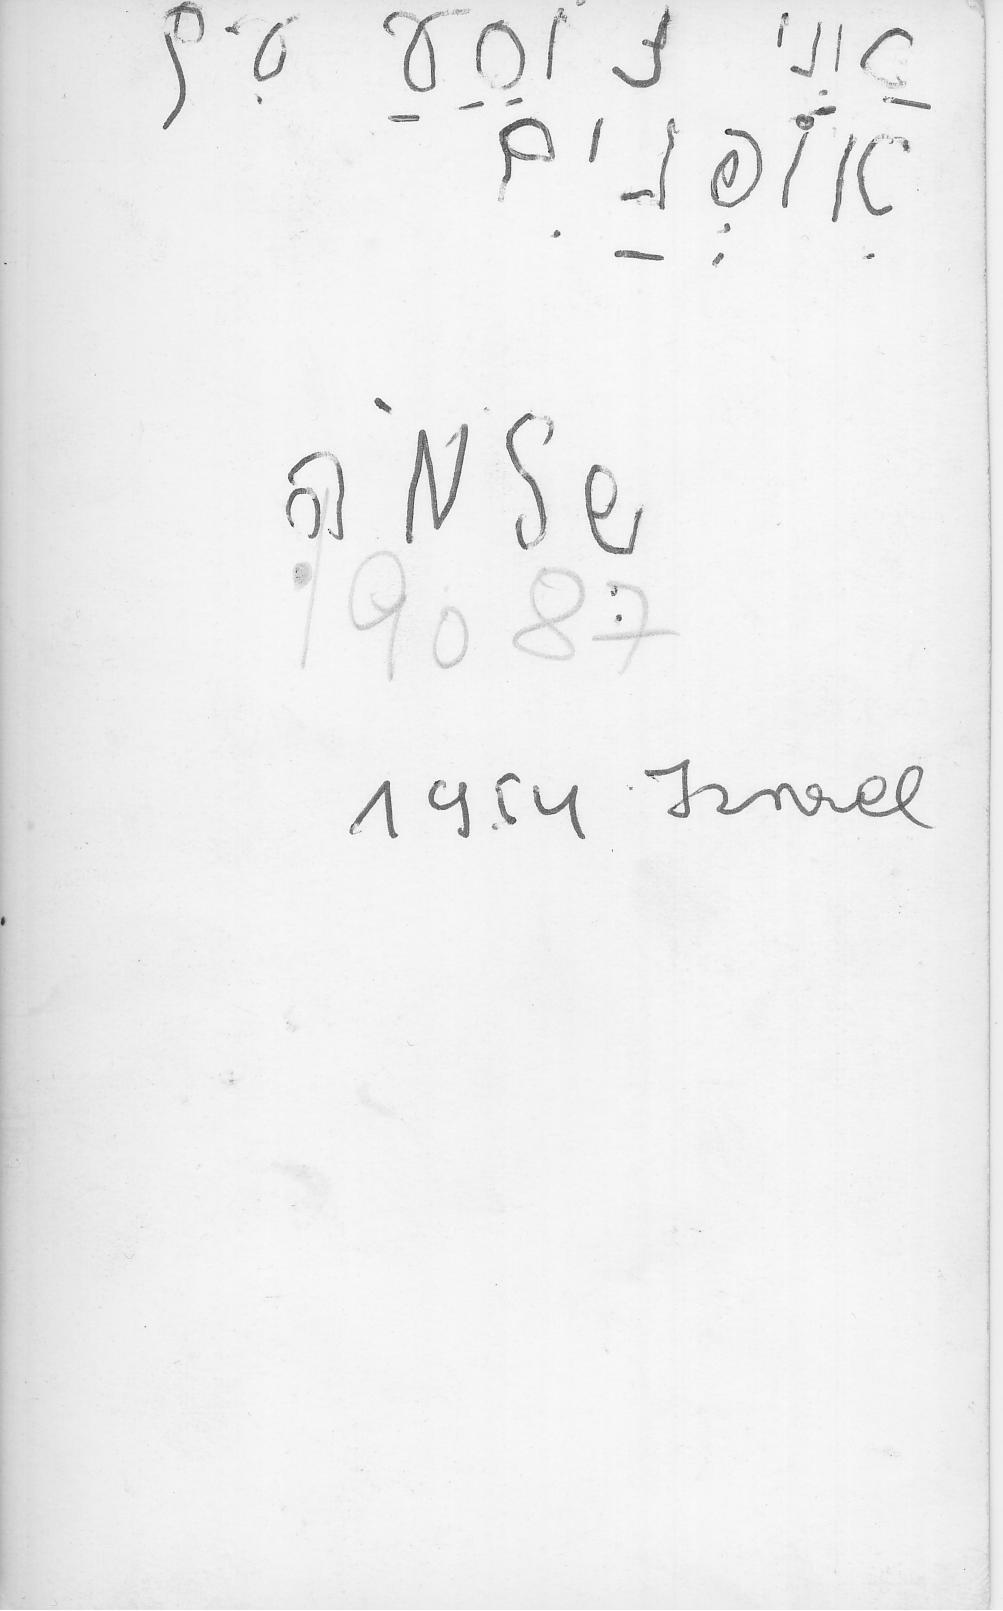 אני נוסע עים
אופנים
שלמה
19087
1954 Israel